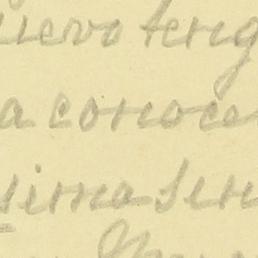 uevo teng
a conoce
sima sen